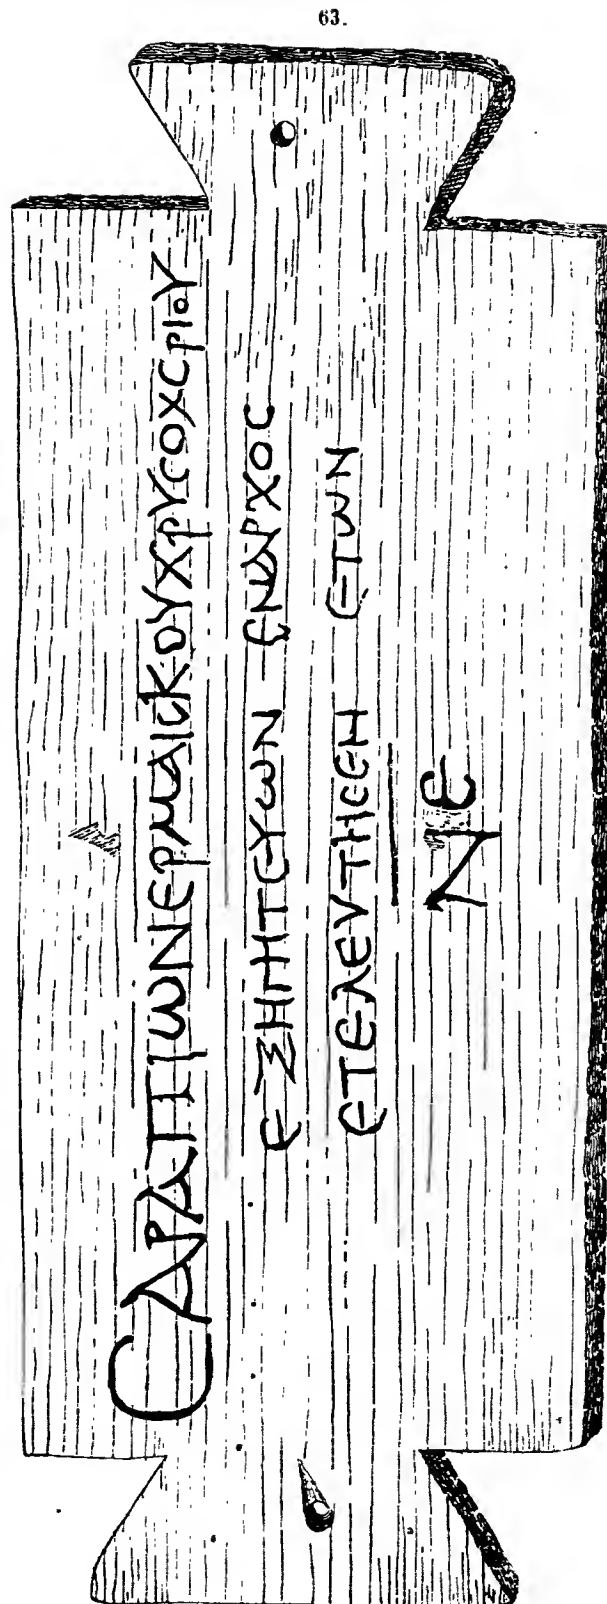 63.
ϹΑΡΑΠΙωΝΕΡΜΑΙϹΚΟΥΧΡΥϹΟΧϹΡΙΟΥ
ΕΞΗΓΗΤΕΥωΝ ΕΝΑΡΧΟϹ
ΕΤΕΛΕΥΤΗϹΕΝ ΕΤωΝ
ΝΕ